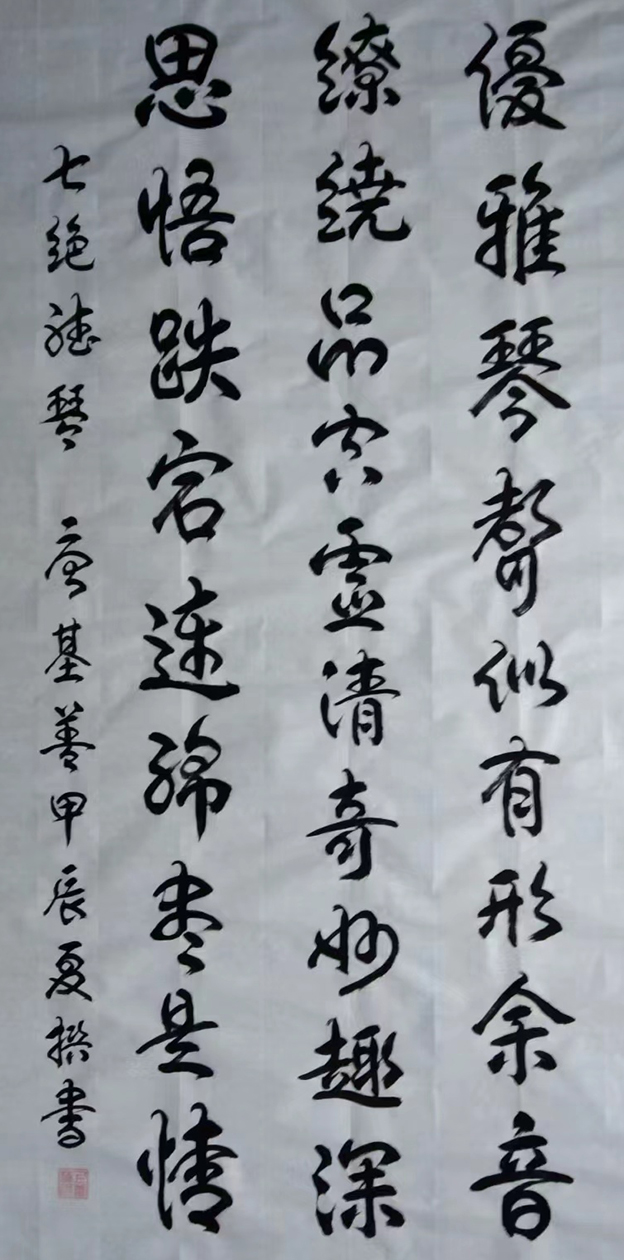 優雅琴聲似有形余音
繚繞品空靈清奇妙趣深
思悟跌宕連綿尽是情
七絶聽琴 唐基善甲辰夏撰書